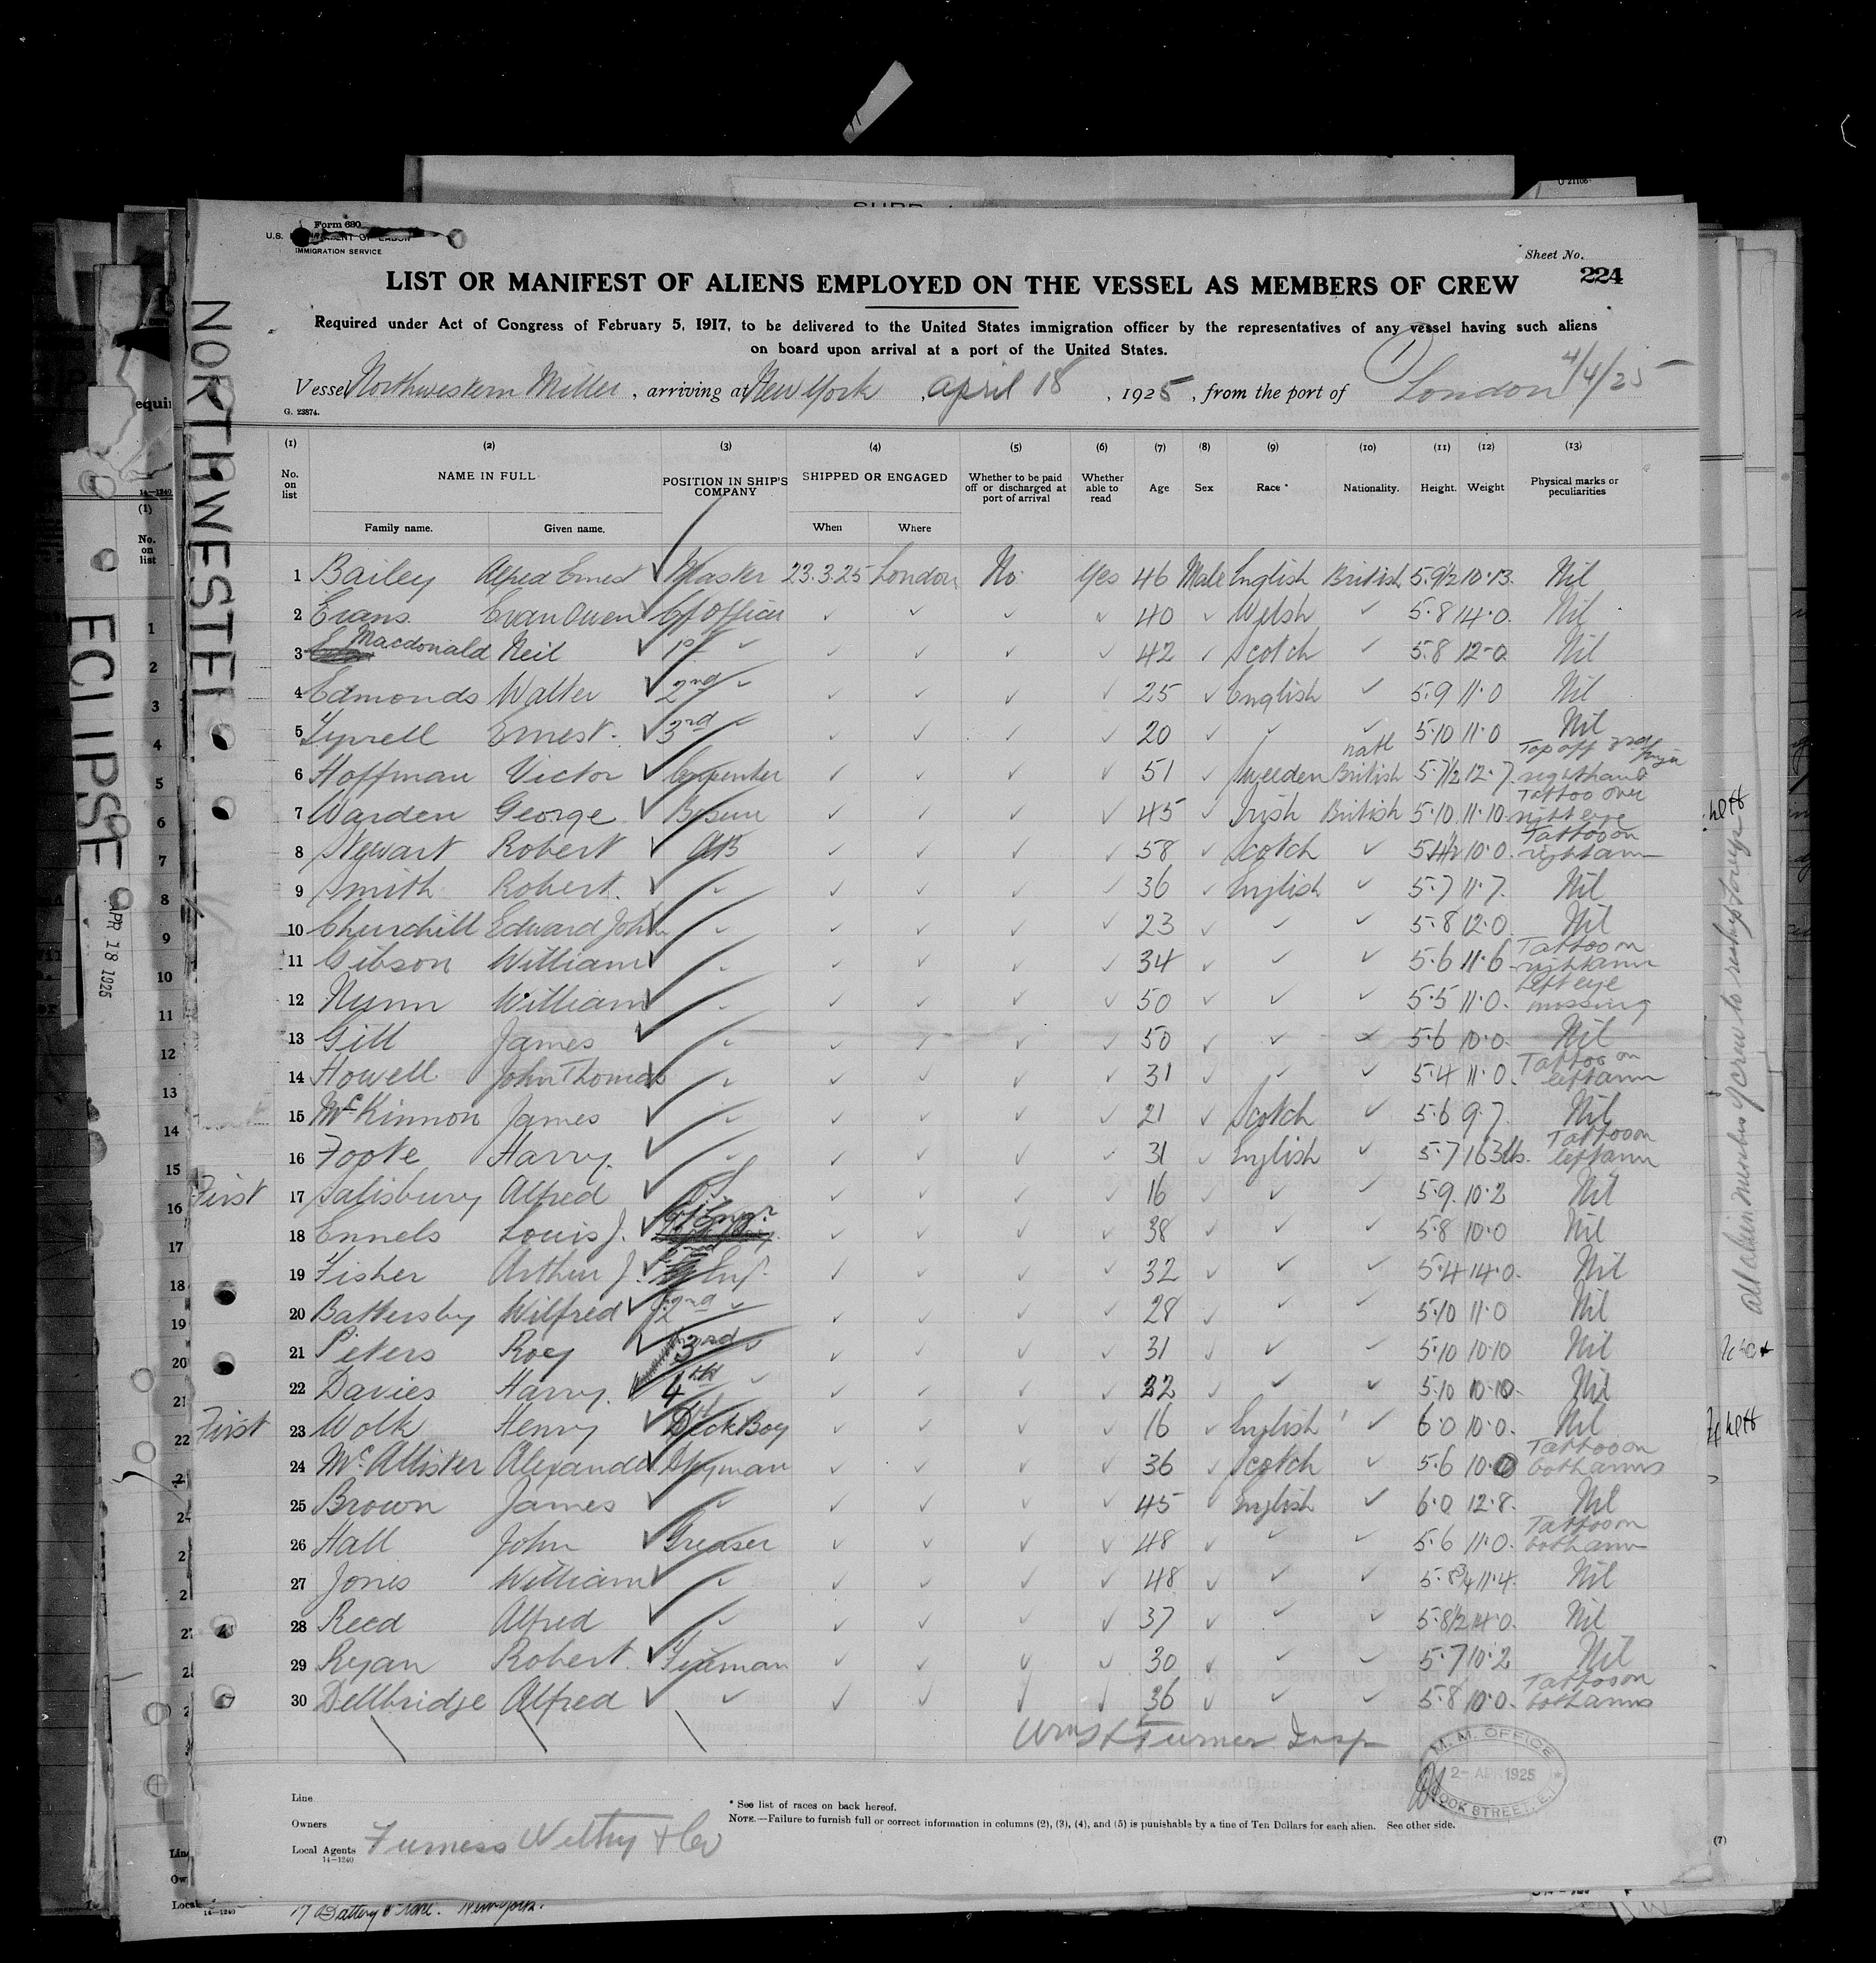 Form 680
U.S. DEPARTMENT OF LABOR
IMMIGRATION SERVICE
Sheet No.
224
LIST OR MANIFEST OF ALIENS EMPLOYED ON THE VESSEL AS MEMBERS OF CREW
Required under Act of Congress of February 5, 1917, to be delivered to the United States immigration officer by the representatives of any vessel having such aliens
on board upon arrival at a port of the United States.
Vessel Northwestern Miller, arriving at New York, April 18, 1925, from the port of London 4/4/25
G. 23874.
(1) (2) (3) (4) (5) (6) (7) (8) (9) (10) (11) (12) (13)
No. on list NAME IN FULL POSITION IN SHIP'S COMPANY SHIPPED OR ENGAGED Whether to be paid off or discharged at port of arrival Whether able to read Age Sex Race * Nationality. Height. Weight Physical marks or peculiarities
Family name. Given name. When Where
1 Bailey Alfred Ernest ✓ Master 23.3.25 London No Yes 46 Male English British 5.9½ 10.13. Nil
2 Evans. Evan Owen ✓ Cf Officer ✓ ✓ ✓ ✓ 40 ✓ Welsh ✓ 5.8 14.0. Nil
3 Macdonald Neil ✓ 1st ✓ ✓ ✓ ✓ ✓ 42 ✓ Scotch ✓ 5.8 12-0. Nil
4 Edmonds Walter ✓ 2nd ✓ ✓ ✓ ✓ ✓ 25 ✓ English ✓ 5.9 11.0 Nil
5 Tyrrell Ernest. ✓ 3rd ✓ ✓ ✓ ✓ ✓ 20 ✓ ✓ ✓ 5.10 11.0 Nil
6 Hoffman Victor ✓ Carpenter ✓ ✓ ✓ ✓ 51 ✓ Sweeden natl British 5.7½ 12.7. Top off 3rd finger right hand
7 Warden George ✓ Bosun ✓ ✓ ✓ ✓ 45 ✓ Irish British 5.10 11.10. Tattoo over right eye
8 Stewart Robert ✓ AB ✓ ✓ ✓ ✓ 58 ✓ Scotch ✓ 5.4½ 10.0. Tattoo on right arm
9 Smith Robert. ✓ ✓ ✓ ✓ ✓ ✓ 36 ✓ English ✓ 5.7 11.7. Nil
10 Churchill Edward John ✓ ✓ ✓ ✓ ✓ 23 ✓ ✓ ✓ 5.8 12.0. Nil
11 Gibson William ✓ ✓ ✓ ✓ ✓ ✓ 34 ✓ ✓ ✓ 5.6 11.6. Tattoo on right arm
12 Nunn William ✓ ✓ ✓ ✓ ✓ ✓ 50 ✓ ✓ ✓ 5.5 11.0. Left eye missing
13 Gill James ✓ ✓ ✓ ✓ ✓ ✓ 50 ✓ ✓ ✓ 5.6 10.0. Nil
14 Howell John Thomas ✓ ✓ ✓ ✓ ✓ ✓ 31 ✓ ✓ ✓ 5.4 11.0. Tattoo on left arm
15 McKinnon James ✓ ✓ ✓ ✓ ✓ ✓ 21 ✓ Scotch ✓ 5.6 9.7. Nil
16 Foote Harry. ✓ ✓ ✓ ✓ ✓ ✓ 31 ✓ English ✓ 5.7 163 lbs. Tattoo on left arm
First 17 Salisbury Alfred ✓ OS ✓ ✓ ✓ ✓ 16 ✓ ✓ ✓ 5.9. 10.2 Nil
18 Ennels Louis J. ✓ Cf Engr. ✓ ✓ ✓ ✓ 38 ✓ ✓ ✓ 5.8 10.0 Nil
19 Fisher Arthur J. ✓ Engr. ✓ ✓ ✓ ✓ 32 ✓ ✓ ✓ 5.4 14.0. Nil
20 Battersby Wilfred ✓ 2nd ✓ ✓ ✓ ✓ ✓ 28 ✓ ✓ ✓ 5.10 11.0 Nil
21 Peters Roey ✓ 3rd ✓ ✓ ✓ ✓ ✓ 31 ✓ ✓ ✓ 5.10 10.10 Nil
22 Davies Harry. ✓ 4th ✓ ✓ ✓ ✓ ✓ 22 ✓ ✓ ✓ 5.10 10.10. Nil
First 23 Wolk Henry ✓ Deck Boy ✓ ✓ ✓ ✓ 16 ✓ English ✓ 6.0 10.0. Nil
24 McAllister Alexander Dkyman ✓ ✓ ✓ ✓ 36 ✓ Scotch ✓ 5.6 10.0 Tattoo on both arms
25 Brown James ✓ ✓ ✓ ✓ ✓ ✓ 45 ✓ English ✓ 6.0 12.8. Nil
26 Hall John ✓ Greaser ✓ ✓ ✓ ✓ 48 ✓ ✓ ✓ 5.6 11.0. Tattoo on both arms
27 Jones William ✓ ✓ ✓ ✓ ✓ ✓ 48 ✓ ✓ ✓ 5.8¾ 11.4. Nil
28 Reed Alfred ✓ ✓ ✓ ✓ ✓ ✓ 37 ✓ ✓ ✓ 5.8½ 11.0. Nil
29 Ryan Robert. Fireman ✓ ✓ ✓ ✓ 30 ✓ ✓ ✓ 5.7 10.2 Nil
30 Dellbridge Alfred ✓ ✓ ✓ ✓ ✓ ✓ 36 ✓ ✓ ✓ 5.8 10.0. Tattoo on both arms
Turner Insp
M. M. OFFICE
2- APR 1925
DOCK STREET, E.1
Line
* See list of races on back hereof.
Owners
NOTE.—Failure to furnish full or correct information in columns (2), (3), (4), and (5) is punishable by a fine of Ten Dollars for each alien. See other side.
Local Agents Furness Withy & Co
14—1240
NORTHWESTER
ECLIPSE
APR 18 1925
17 Battery Place. New York.
(7)